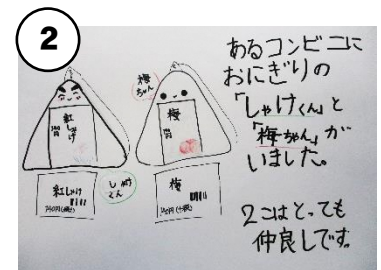 2
あるコンビニに
おにぎりの
「しゃけくん」と
「梅ちゃん」が
いました。
2こはとっても
仲良しです。
梅
ちゃん
紅しゃけ
梅
しゃけ
くん
紅しゃけ
梅